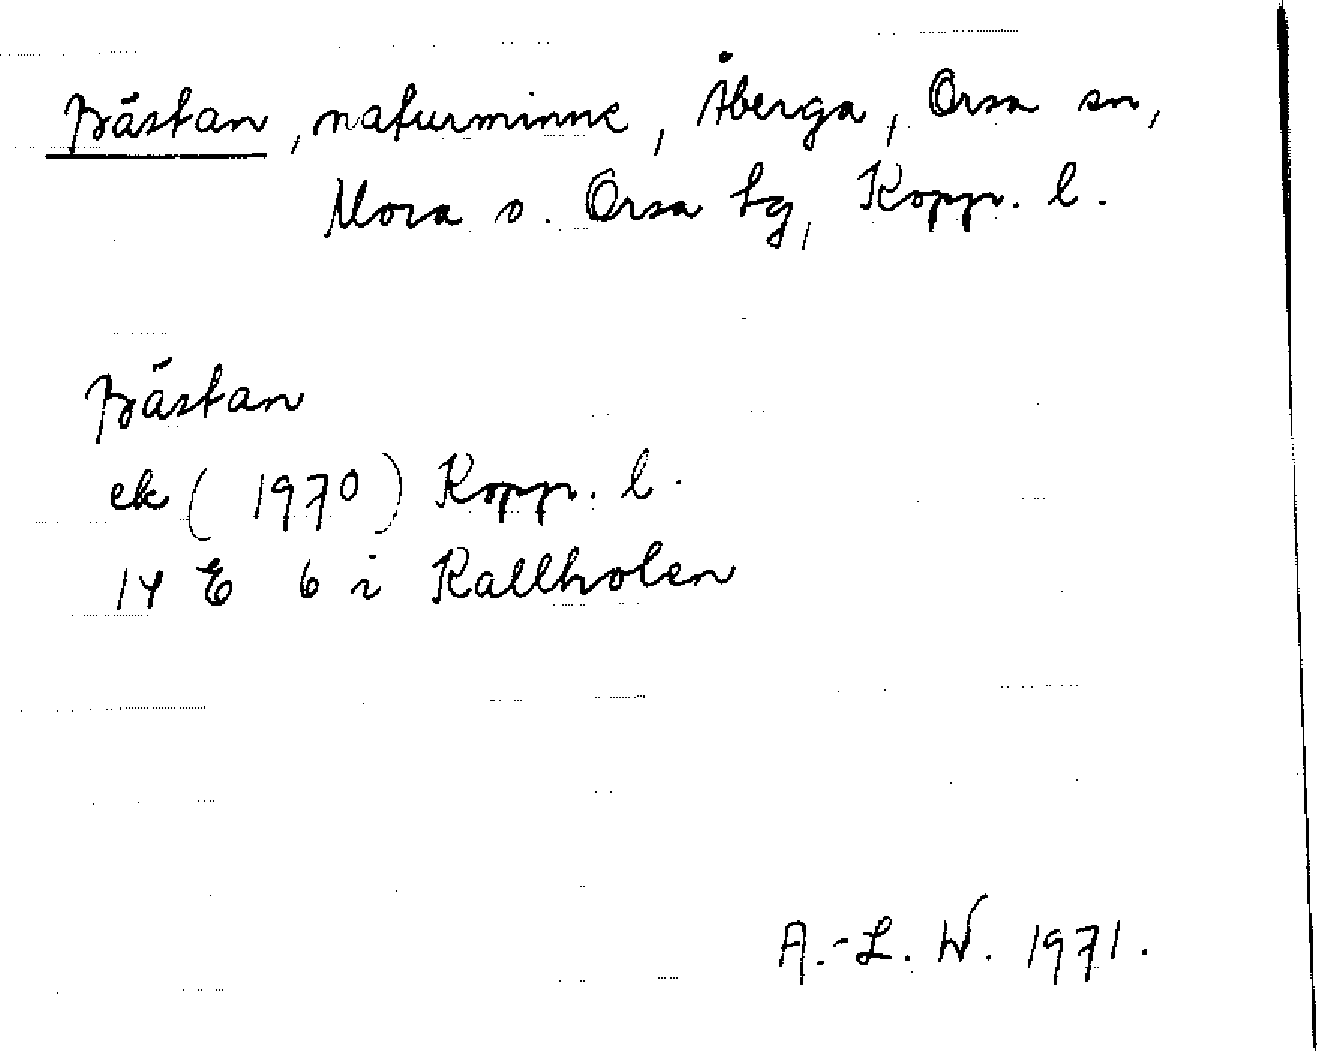 Bästan, naturminne, Åberga, Orsa sn,
Mora o. Orsa tg, Kopp. l.
Bästan
ek (1970) Kopp. l.
14 E 6 i Kallholen
A.-L. W. 1971.